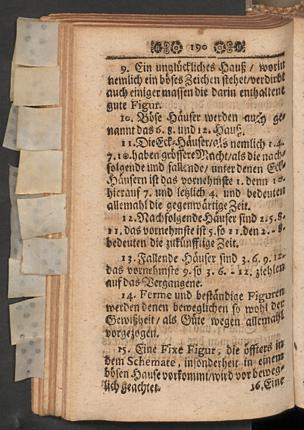 190
9. Ein unglückliches Hauß / worin
nemlich ein böses Zeichen stehet / verdirbt
auch einiger massen die darin enthaltene
gute Figur.
10. Böse Häuser werden auch ge-
nannt das 6. 8. und 12. Hauß.
11. Die Eck-Häuser / als nemlich 1. 4.
7. 10. haben grössere Macht / als die nach-
folgende und fallende / unter denen Eck-
Häusern ist das vornehmste 1. denn 10.
hierauf 7. und letzlich 4. und bedeuten
allemahl die gegenwärtige Zeit.
12. Nachfolgende Häuser sind 2. 5. 8.
11. das vornehmste ist 5. so 11. den 2. - 8.
bedeuten die zukünfftige Zeit.
13. Fallende Häuser sind 3. 6. 9. 12.
das vornehmste 9. so 3. 6. - 12. ziehlen
auf das Vergangene.
14. Ferme und beständige Figuren
werden denen beweglichen so wohl der
Gewißheit / als Güte wegen allemahl
vorgezogen.
15. Eine Fixe Figur, die öffters in
dem Schemate, insonderheit in einem
bösen Hause vorkommt / wird vor beweg-
lich geachtet.
16. Eine